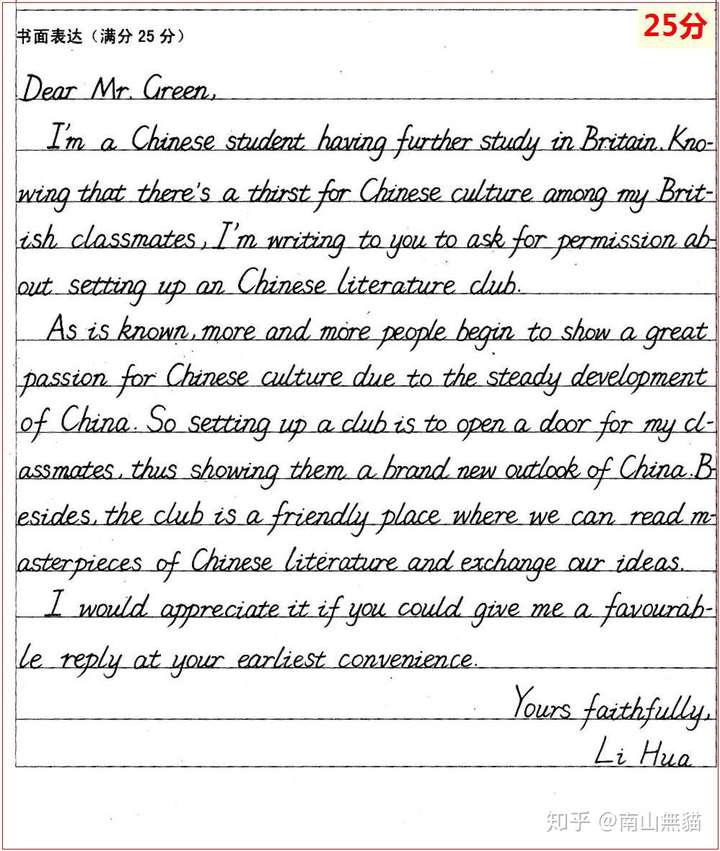 25分
书面表达（满分 25 分）
Dear Mr. Green,
I'm a Chinese student having further study in Britain. Kno-
wing that there's a thirst for Chinese culture among my Brit-
ish classmates, I'm writing to you to ask for permission ab-
out setting up an Chinese literature club.
As is known, more and more people begin to show a great
passion for Chinese culture due to the steady development
of China. So setting up a club is to open a door for my cl-
assmates, thus showing them a brand new outlook of China. B-
esides, the club is a friendly place where we can read m-
asterpieces of Chinese literature and exchange our ideas.
I would appreciate it if you could give me a favourab-
le reply at your earliest convenience.
Yours faithfully,
Li Hua
知乎 @南山無貓